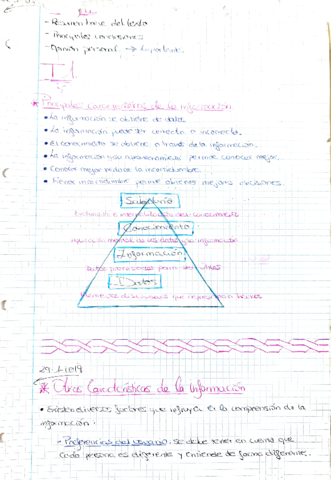 - Resumen breve del texto
- Principales conclusiones
- Opinión personal → Importante
* Principales características de la información
• La información se obtiene de datos.
• La información puede ser correcta o incorrecta.
• El conocimiento se obtiene a través de la información.
• La información y/o conocimiento permite conocer mejor.
• Conocer mejor reduce la incertidumbre.
• Menos incertidumbre permite obtener mejores decisiones.
Sabiduría
conocimiento
Conocimiento
de los datos y la información
Información
Datos procesados para ser útiles
Datos
que representan hechos
* Otras Características de la Información
• Existen diversos factores que influyen en la comprensión de la
información:
- Preferencias del usuario: se debe tener en cuenta que
cada persona es diferente y entiende de forma diferente.